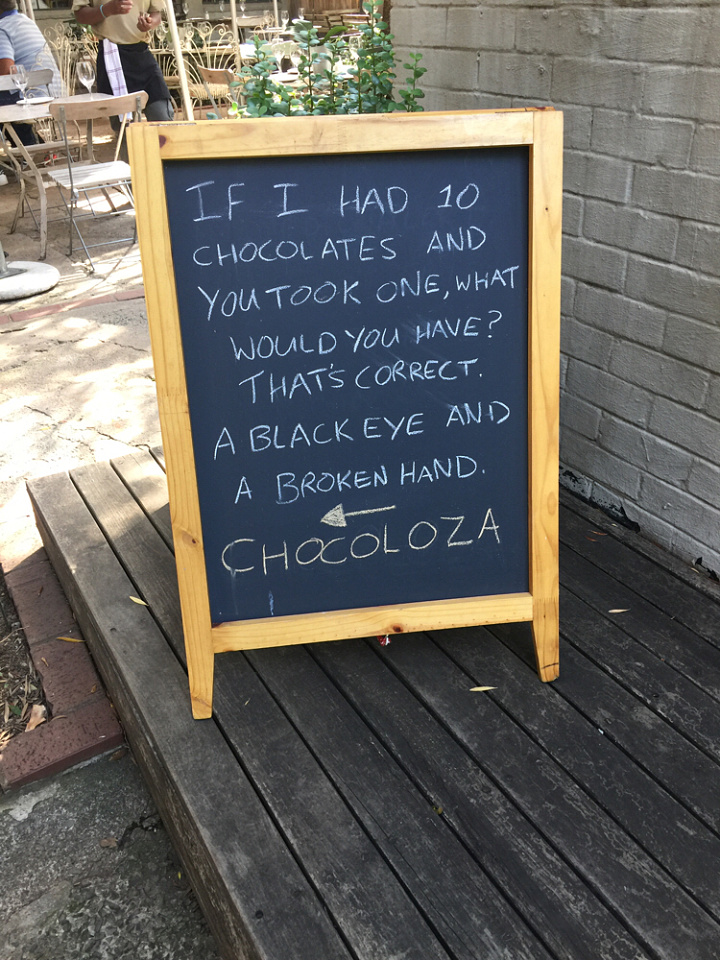 IF I HAD 10
CHOCOLATES AND
YOU TOOK ONE, WHAT
WOULD YOU HAVE?
THAT'S CORRECT.
A BLACK EYE AND
A BROKEN HAND.
CHOCOLOZA